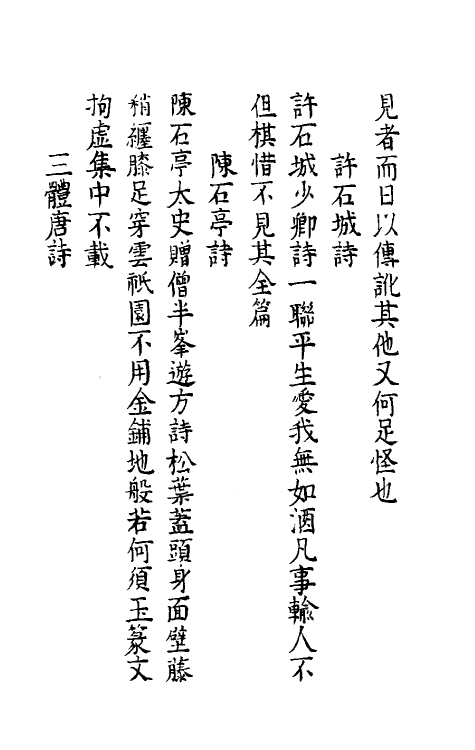 見者而日以傳訛其他又何足怪也
許石城詩
許石城少卿詩一聯平生愛我無如酒凡事輸人不
但棋惜不見其全篇
陳石亭詩
陳石亭太史贈僧半峯遊方詩松葉蓋頭身面壁藤
稍纏膝足穿雲祇園不用金鋪地般若何須玉篆文
拘虛集中不載
三體唐詩